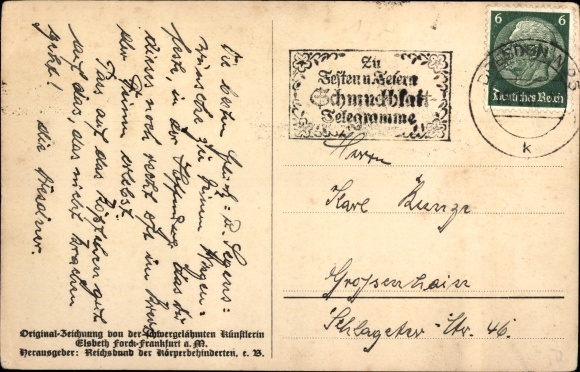 Die besten Glück- u. Segens-
wünsche zu Deinem
fest, in der Hoffnung, daß du
dieses noch recht oft im Kreise
der Deinen erlebst.
auf das, das nicht
geht! die Dresdner.
Original-Zeichnung von der schwergelähmten Künstlerin
Elsbeth Forck-Frankfurt a. M.
Herausgeber: Reichsbund der Körperbehinderten, e. V.
Zu
Festen u. Feiern
Schmuckblatt-
Telegramme
6 6
Deutsches Reich
DRESDEN
k
Herrn
Karl Kunze
Großenhain
Schlageter-Str. 46.